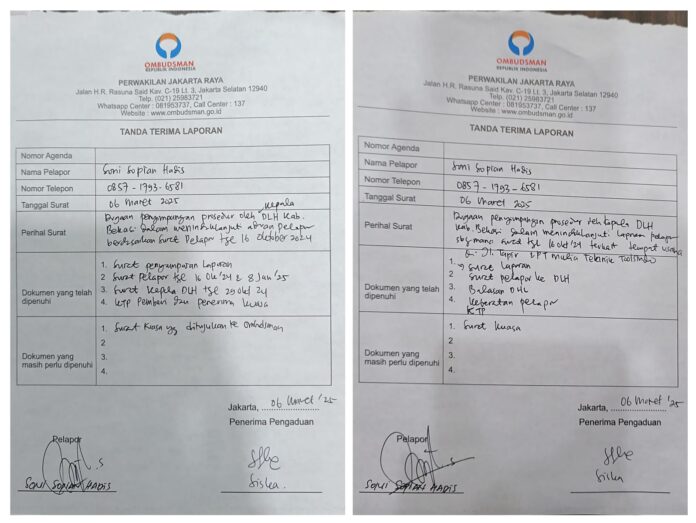 OMBUDSMAN
REPUBLIK INDONESIA
PERWAKILAN JAKARTA RAYA
Jalan H.R. Rasuna Said Kav. C-19 Lt. 3, Jakarta Selatan 12940
Telp. (021) 25983721
Whatsapp Center : 081953737, Call Center : 137
Website : www.ombudsman.go.id
TANDA TERIMA LAPORAN
Nomor Agenda
Nama Pelapor Soni Sopian Hadis
Nomor Telepon 0857-1793-6581
Tanggal Surat 06 Maret 2025
Perihal Surat
Dugaan penyimpangan prosedur oleh Kepala DLH Kab.
Bekasi dalam menindaklanjuti aduan Pelapor
berdasarkan surat Pelapor tgl 16 Oktober 2024
Dokumen yang telah dipenuhi
1. Surat penyampaian Laporan
2. Surat Pelapor tgl 16 Okt'24 & 8 Jan'25
3. Surat Kepala DLH tgl 29 Okt 24
4. KTP Pemberi dan penerima kuasa
Dokumen yang masih perlu dipenuhi
1. Surat Kuasa yg ditujukan ke Ombudsman
2
3.
4.
Jakarta, 06 Maret '25
Penerima Pengaduan
Pelapor
SONI SOPIAN HADIS
Siska.
OMBUDSMAN
REPUBLIK INDONESIA
PERWAKILAN JAKARTA RAYA
Jalan H.R. Rasuna Said Kav. C-19 Lt. 3, Jakarta Selatan 12940
Telp. (021) 25983721
Whatsapp Center : 081953737, Call Center : 137
Website : www.ombudsman.go.id
TANDA TERIMA LAPORAN
Nomor Agenda
Nama Pelapor Soni Sopian Hadis
Nomor Telepon 0857-1793-6581
Tanggal Surat 06 Maret 2025
Perihal Surat
Dugaan penyimpangan prosedur oleh Kepala DLH
Kab. Bekasi dalam menindaklanjuti Laporan pelapor
sbgmana surat tgl 16 Okt'24 terkait tempat usaha
di Jl. PT Mulia Teknik
Dokumen yang telah dipenuhi
1. Surat Laporan
2. Surat pelapor ke DLH
3. Balasan DLH
4. Keberatan pelapor
KTP
Dokumen yang masih perlu dipenuhi
1. Surat Kuasa
2
3.
4.
Jakarta, 06 Maret '25
Penerima Pengaduan
Pelapor
SONI SOPIAN HADIS
Siska